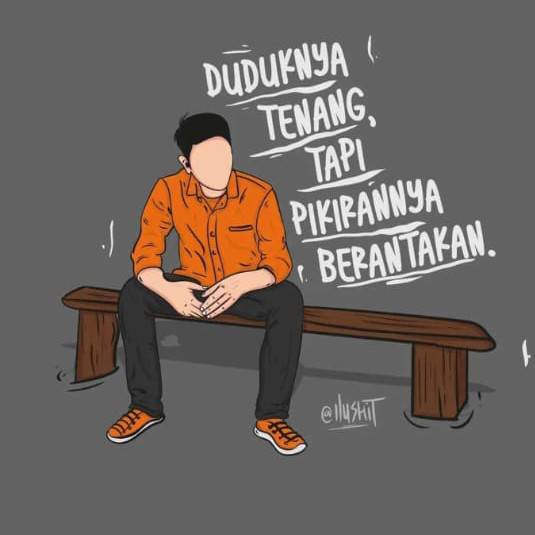 DUDUKNYA
TENANG,
TAPI
PIKIRANNYA
BERANTAKAN.
@ilushit